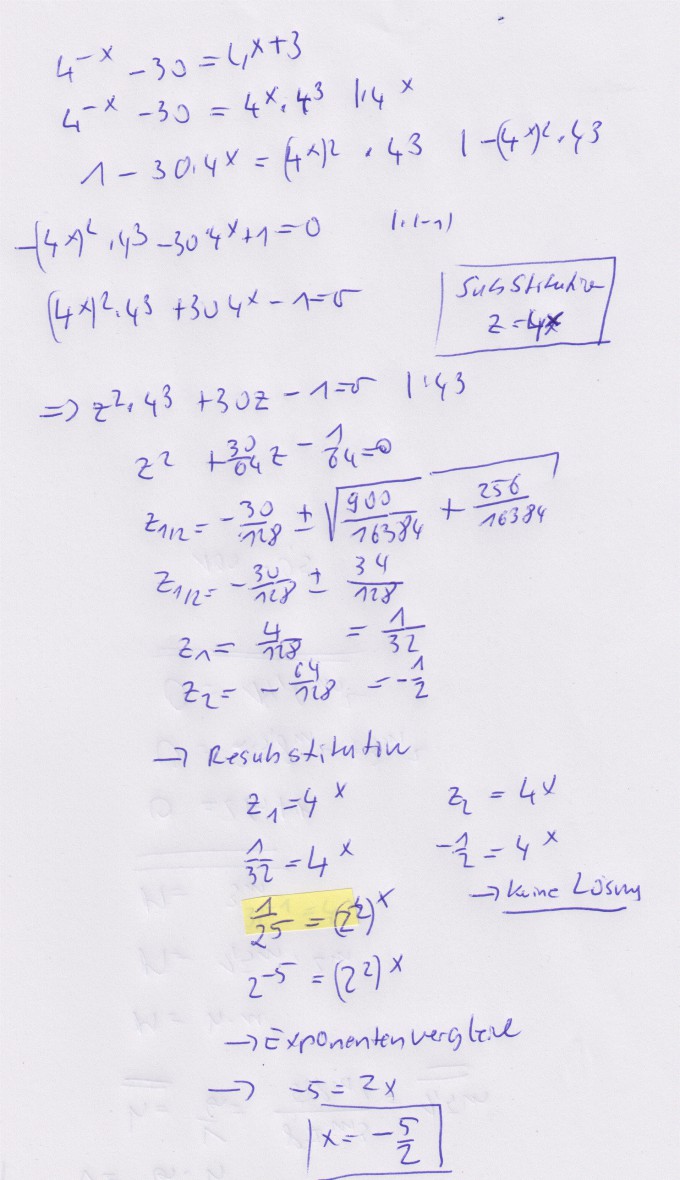 4^-x - 30 = 4^x+3
4^-x - 30 = 4^x · 4^3 | · 4^x
1 - 30 · 4^x = (4^x)^2 · 4^3 | -(4^x)^2 · 4^3
-(4^x)^2 · 4^3 - 30 · 4^x + 1 = 0 | · (-1)
(4^x)^2 · 4^3 + 30 4^x - 1 = 0
Substitution
z = 4^x
=> z^2 · 4^3 + 30z - 1 = 0 | : 4^3
z^2 + 30/64 z - 1/64 = 0
z_1/2 = - 30/128 ± √(900/16384 + 256/16384)
z_1/2 = - 30/128 ± 34/128
z_1 = 4/128 = 1/32
z_2 = - 64/128 = - 1/2
→ Resubstitution
z_1 = 4^x z_2 = 4^x
1/32 = 4^x - 1/2 = 4^x
→ keine Lösung
1/2^5 = (2^2)^x
2^-5 = (2^2)^x
→ Exponentenvergleich
→ -5 = 2x
x = - 5/2